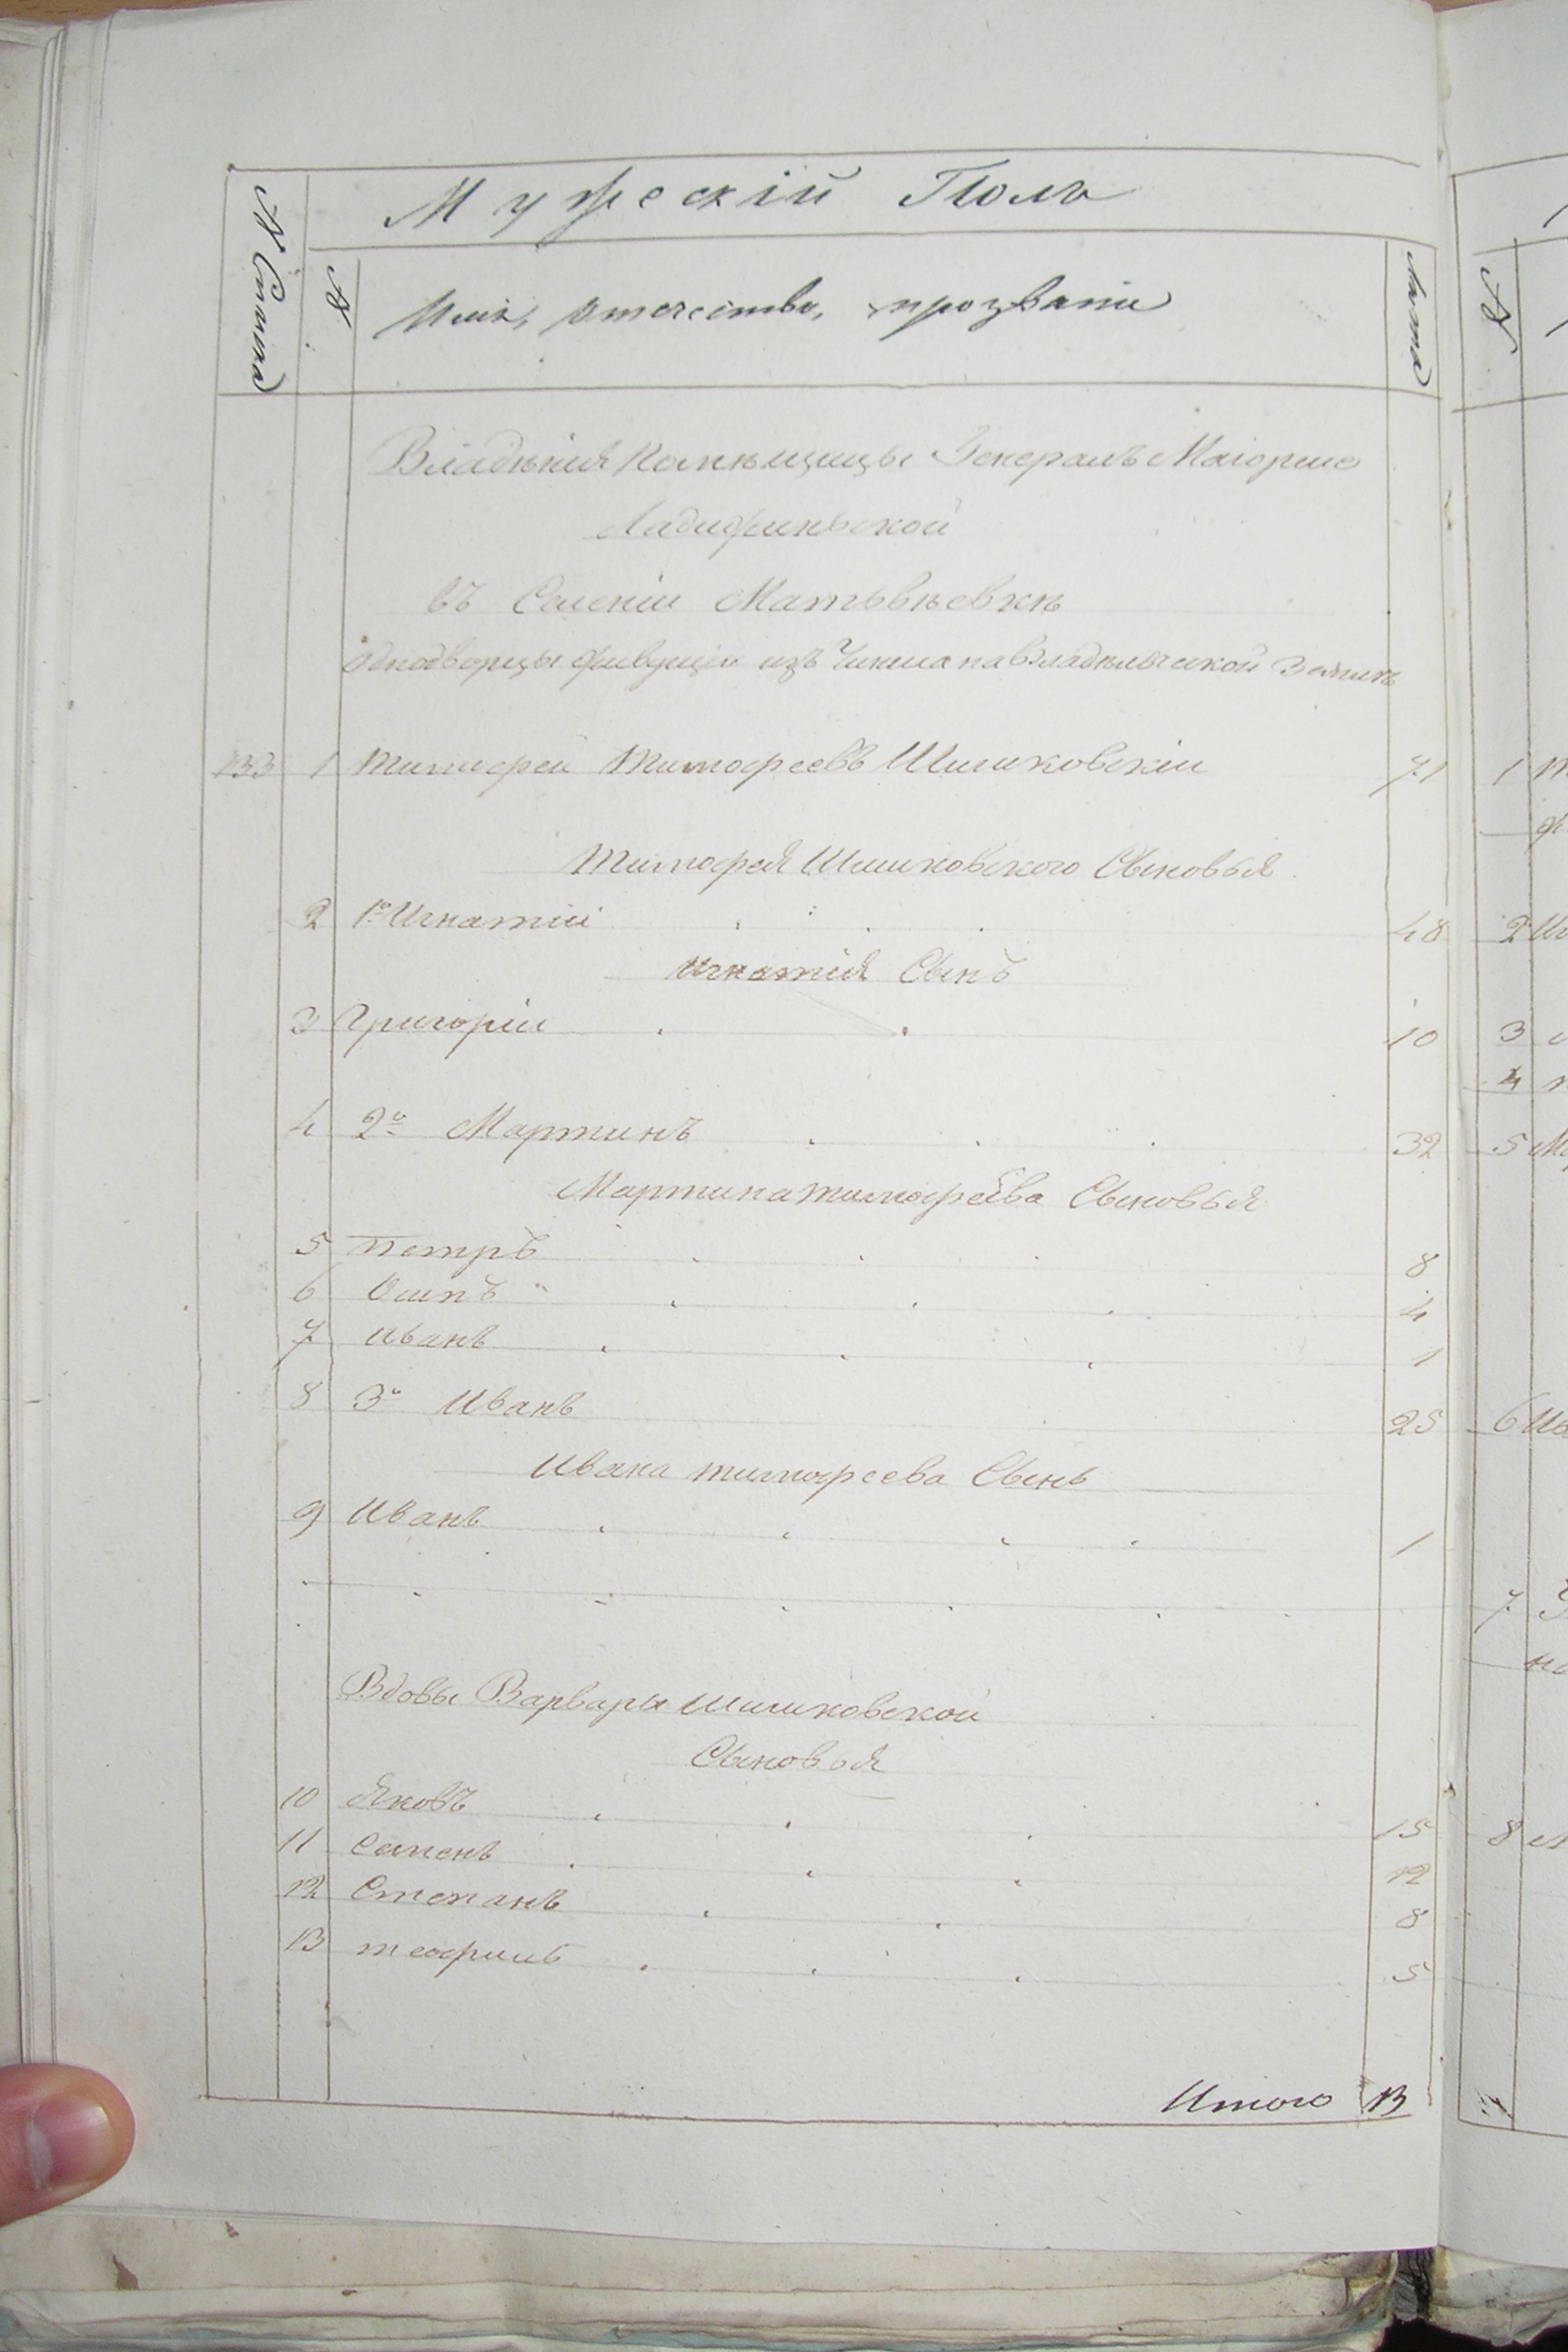 Мужескій Полъ
№ Семьи
№
Имя, отечество, прозваніи
Лета
№
Владѣнія Помѣщицы Генералъ Маіорше
Ладифиньской
въ Селеніи Матвѣевкѣ
однодворцы живущіи изъ Чинша на Владѣльческой Землѣ
133 1 Тимофей Тимофеевъ Шишковскіи 71
1
Тимофея Шишковского Сыновья
2 1й Игнатій 48
2
Игнатія Сынъ
3 Григоріи 10
3
4
4 2й Мартинъ 32
5
Мартина тимофеева Сыновья
5 Петръ 8
6 Осипъ 4
7 Иванъ 1
8 3й Иванъ 25
6
Ивана тимофеева Сынъ
9 Иванъ 1
7
Вдовы Варвары Шишковской
Сыновья
10 Яковъ 15
8
11 Семенъ 12
12 Степанъ 8
13 теофилъ 5
Итого 13